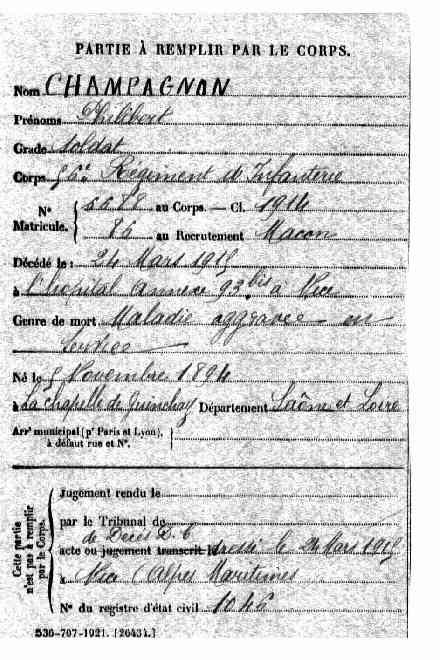 PARTIE À REMPLIR PAR LE CORPS.
Nom CHAMPAGNON
Prénoms Philibert
Grade soldat
Corps 56e Régiment d'Infanterie
N° Matricule. au Corps. — Cl. 1914
86 au Recrutement Macon
Décédé le : 24 Mars 1915
à l'hôpital annexe 93 bis à Nice
Genre de mort Maladie aggravée en
service
Né le 5 Novembre 1894
à La Chapelle de Guinchay Département Saône et Loire
Arrt municipal (pr Paris et Lyon),
à défaut rue et N°.
Cette partie n'est pas à remplir par le Corps.
Jugement rendu le
par le Tribunal de
de Décès
acte ou jugement transcrit le dressé le Mars 1915
à Nice (Alpes Maritimes
N° du registre d'état civil
536-707-1921. [26434.]